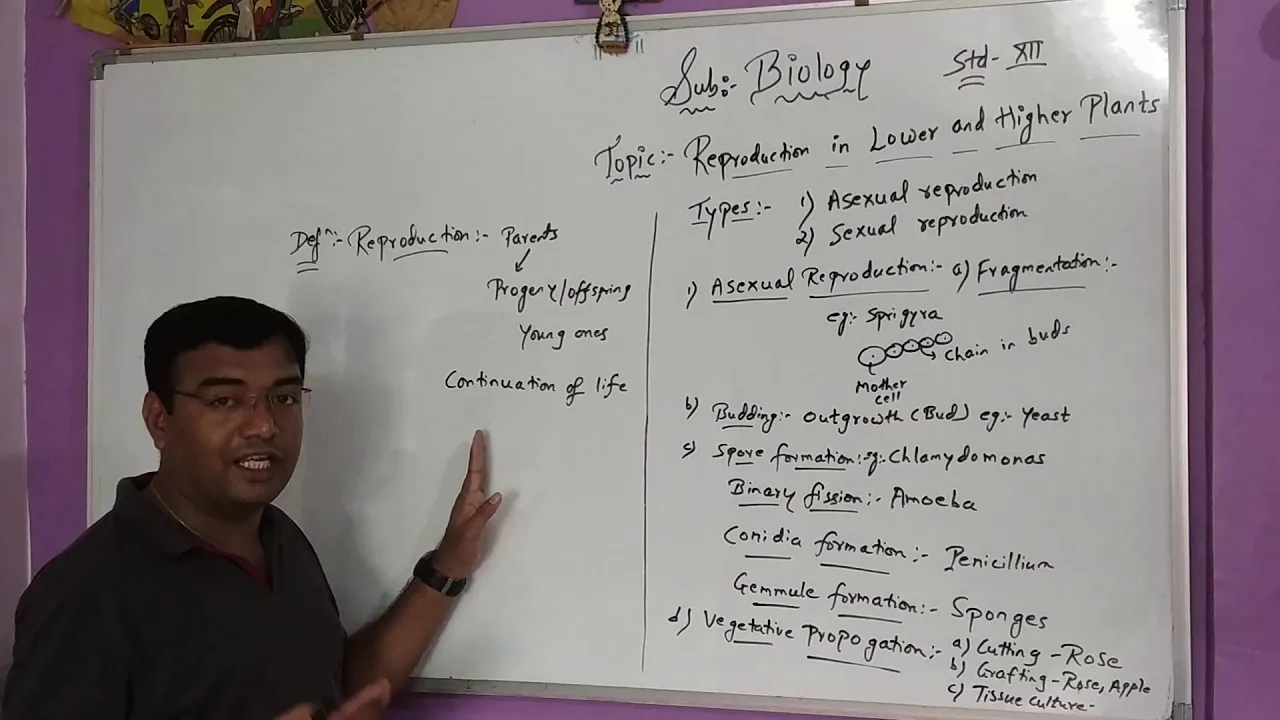 Sub:- Biology Std- XII
Topic:- Reproduction in Lower and Higher Plants
Defn:- Reproduction:- Parents
Progeny/offspring
Young ones
Continuation of life
Types:- 1) Asexual reproduction
2) Sexual reproduction
1) Asexual Reproduction:- a) Fragmentation:-
eg:- Sprigyra
Chain in buds
Mother
cell
b) Budding:- Outgrowth (Bud) eg:- Yeast
c) Spore formation:- eg:- Chlamydomonas
Binary fission:- Amoeba
Conidia formation:- Penicillium
Gemmule formation:- Sponges
d) Vegetative Propogation:- a) Cutting - Rose
b) Grafting - Rose, Apple
c) Tissue culture-